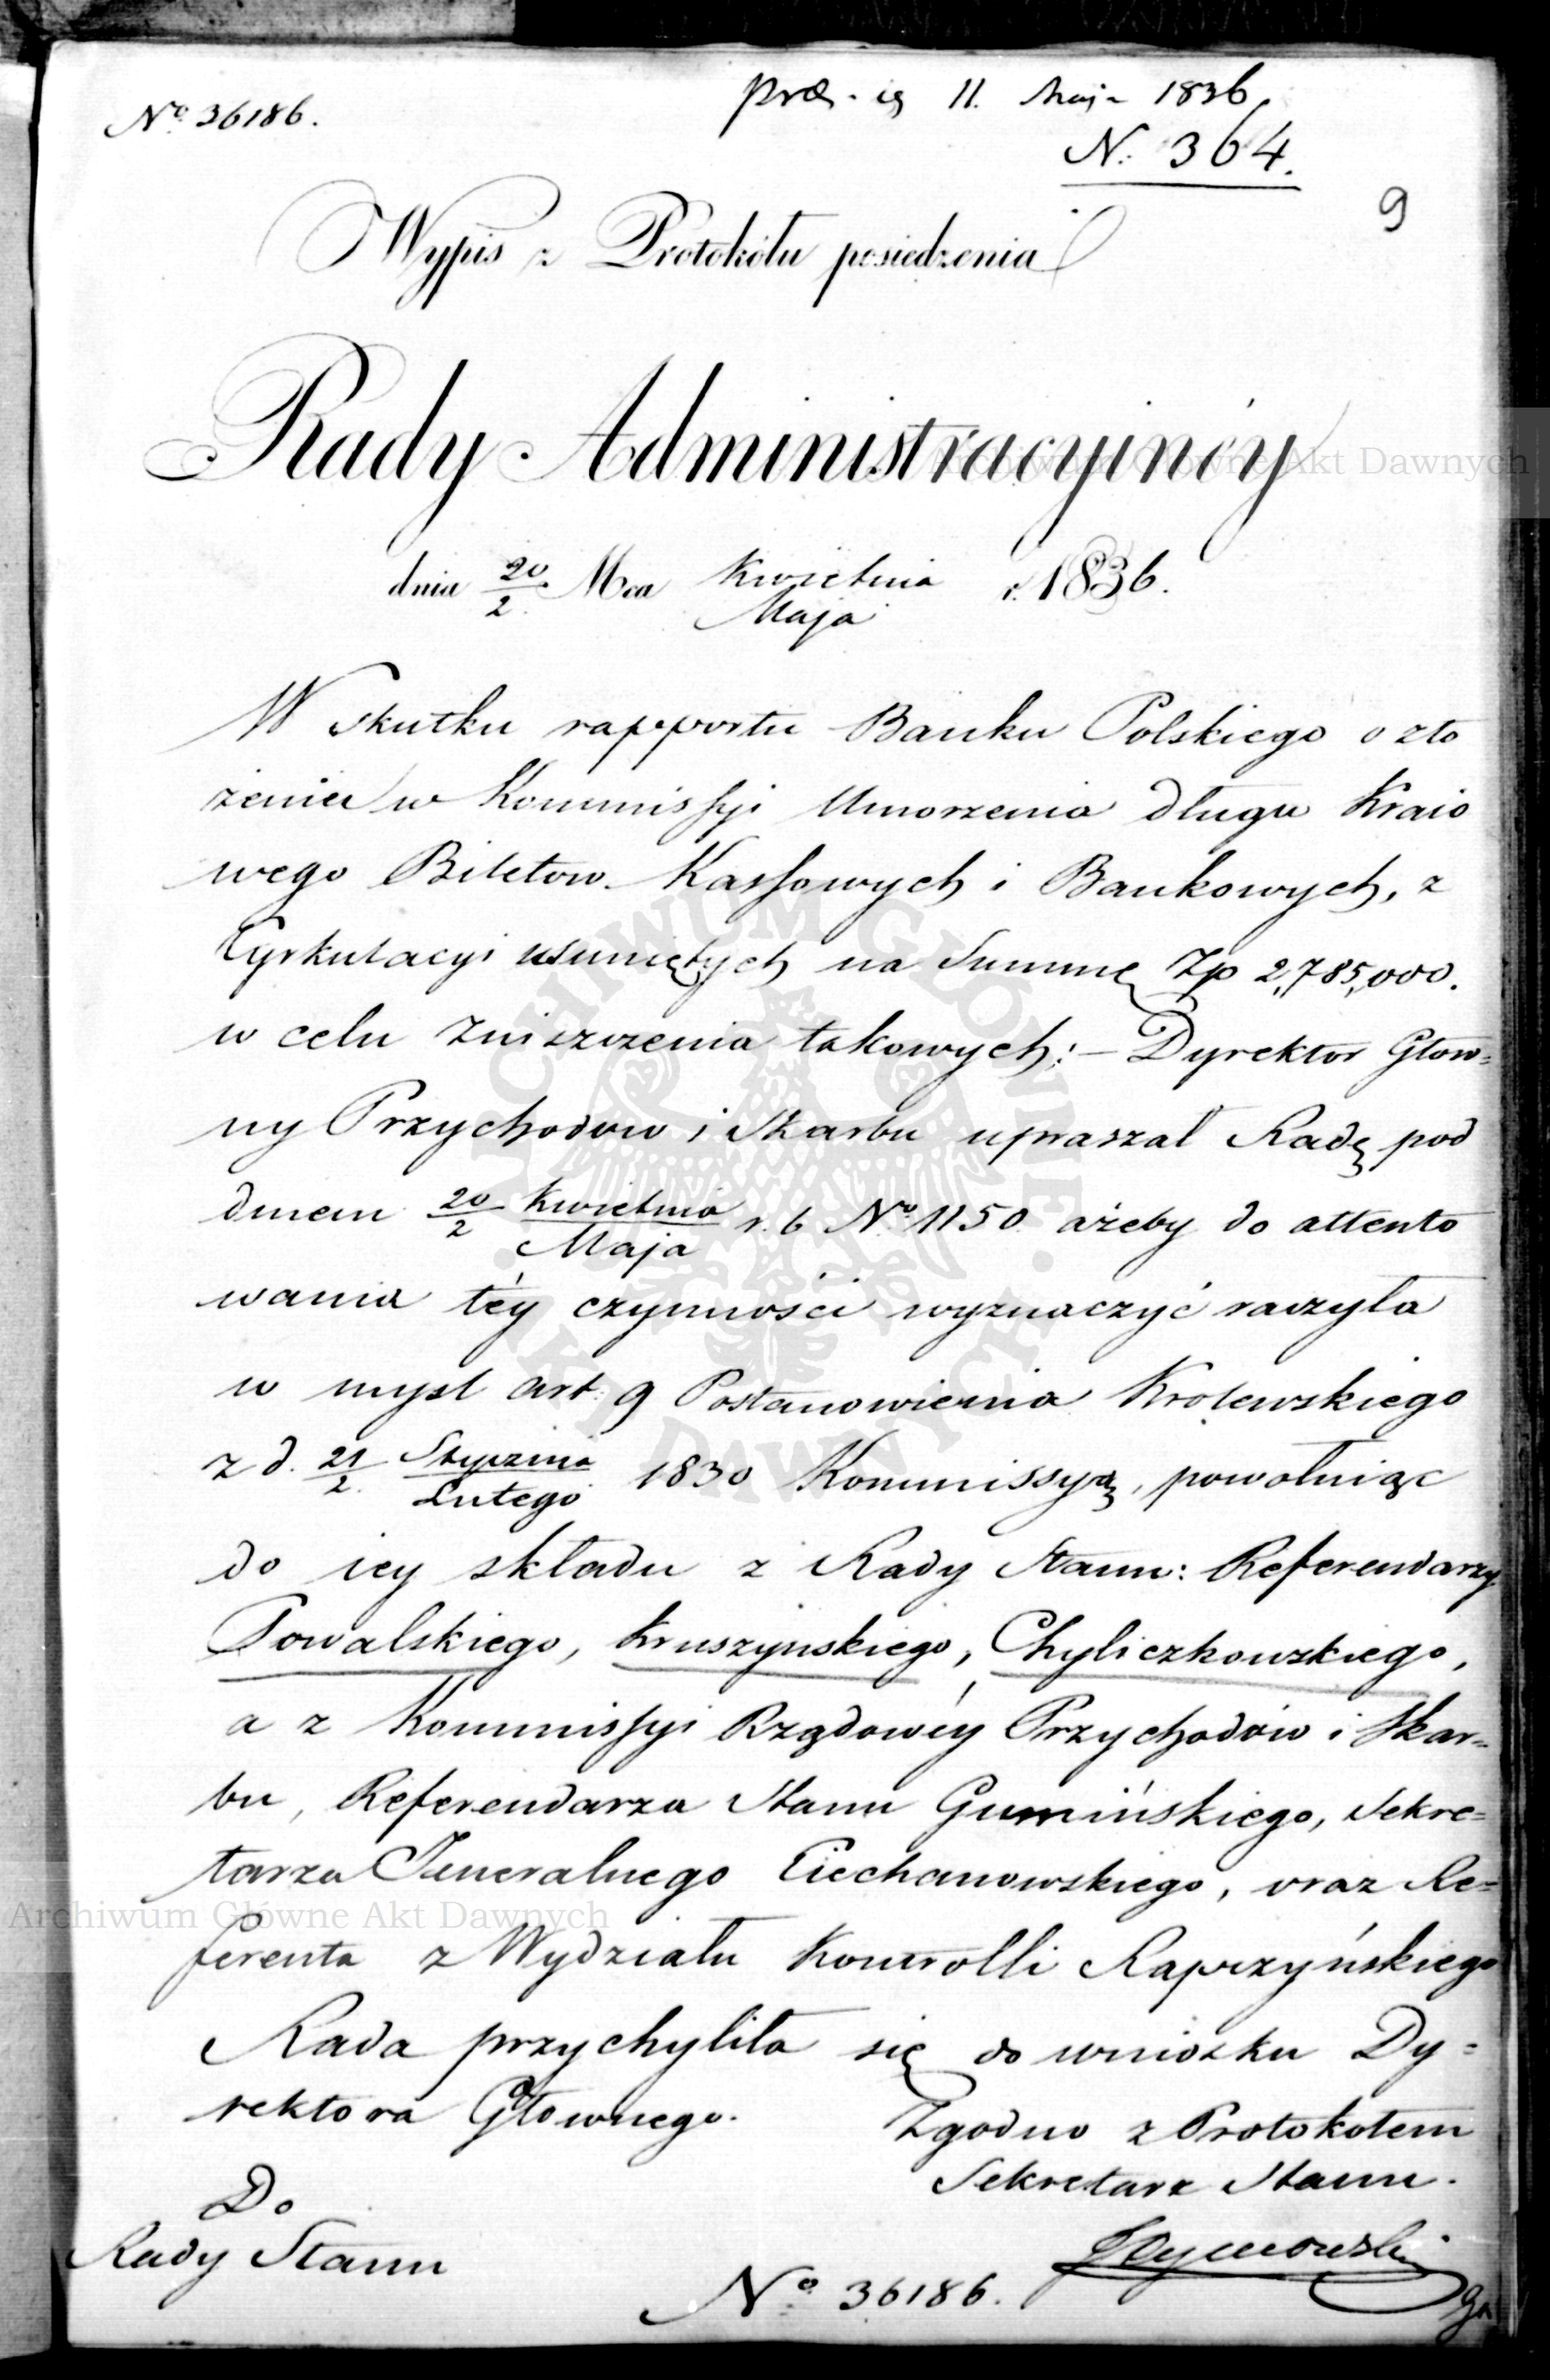 No 36186.
11. Maja 1836.
N. 364.
9
Wypis z Protokółu posiedzenia
Rady Administracyinéy
dnia 20/2. Mca Kwietnia/Maja r. 1836.
W skutku rapportu Banku Polskiego o zło
żeniu w Kommissyi Umorzenia długu Kraio
wego Biletow Kassowych i Bankowych, z
Cyrkulacyi usuniętych na Summę Zp 2,785,000.
w celu zniszczenia takowych; – Dyrektor Głow=
ny Przychodow i Skarbu upraszał Radę pod
dniem 20/2 Kwietnia/Maja r. b No 1150 ażeby do attento
wania téy czynności wyznaczyć raczyła
w mysl art. 9 Postanowienia Krolewskiego
z d. 21/2. Stycznia/Lutego 1830 Kommissyą, powołuiąc
do iey składu z Rady Stanu: Referendarzy
Powalskiego, Kruszynskiego, Chyliczkowskiego,
a z Kommissyi Rządowéy Przychodów i Skar=
bu, Referendarza Stanu Gumińskiego, Sekre=
tarza Jeneralnego Ciechanowskiego, oraz Re=
ferenta z Wydziału Kontrolli Kapczyńskiego
Rada przychyliła się do wniosku Dy=
rektora Głownego.
Zgodno z Protokołem
Sekretarz Stanu.
Do
Rady Stanu
No 36186.
Archiwum Główne Akt Dawnych
Archiwum Główne Akt Dawnych
ARCHIWUM GŁÓWNE · AKT DAWNYCH ·